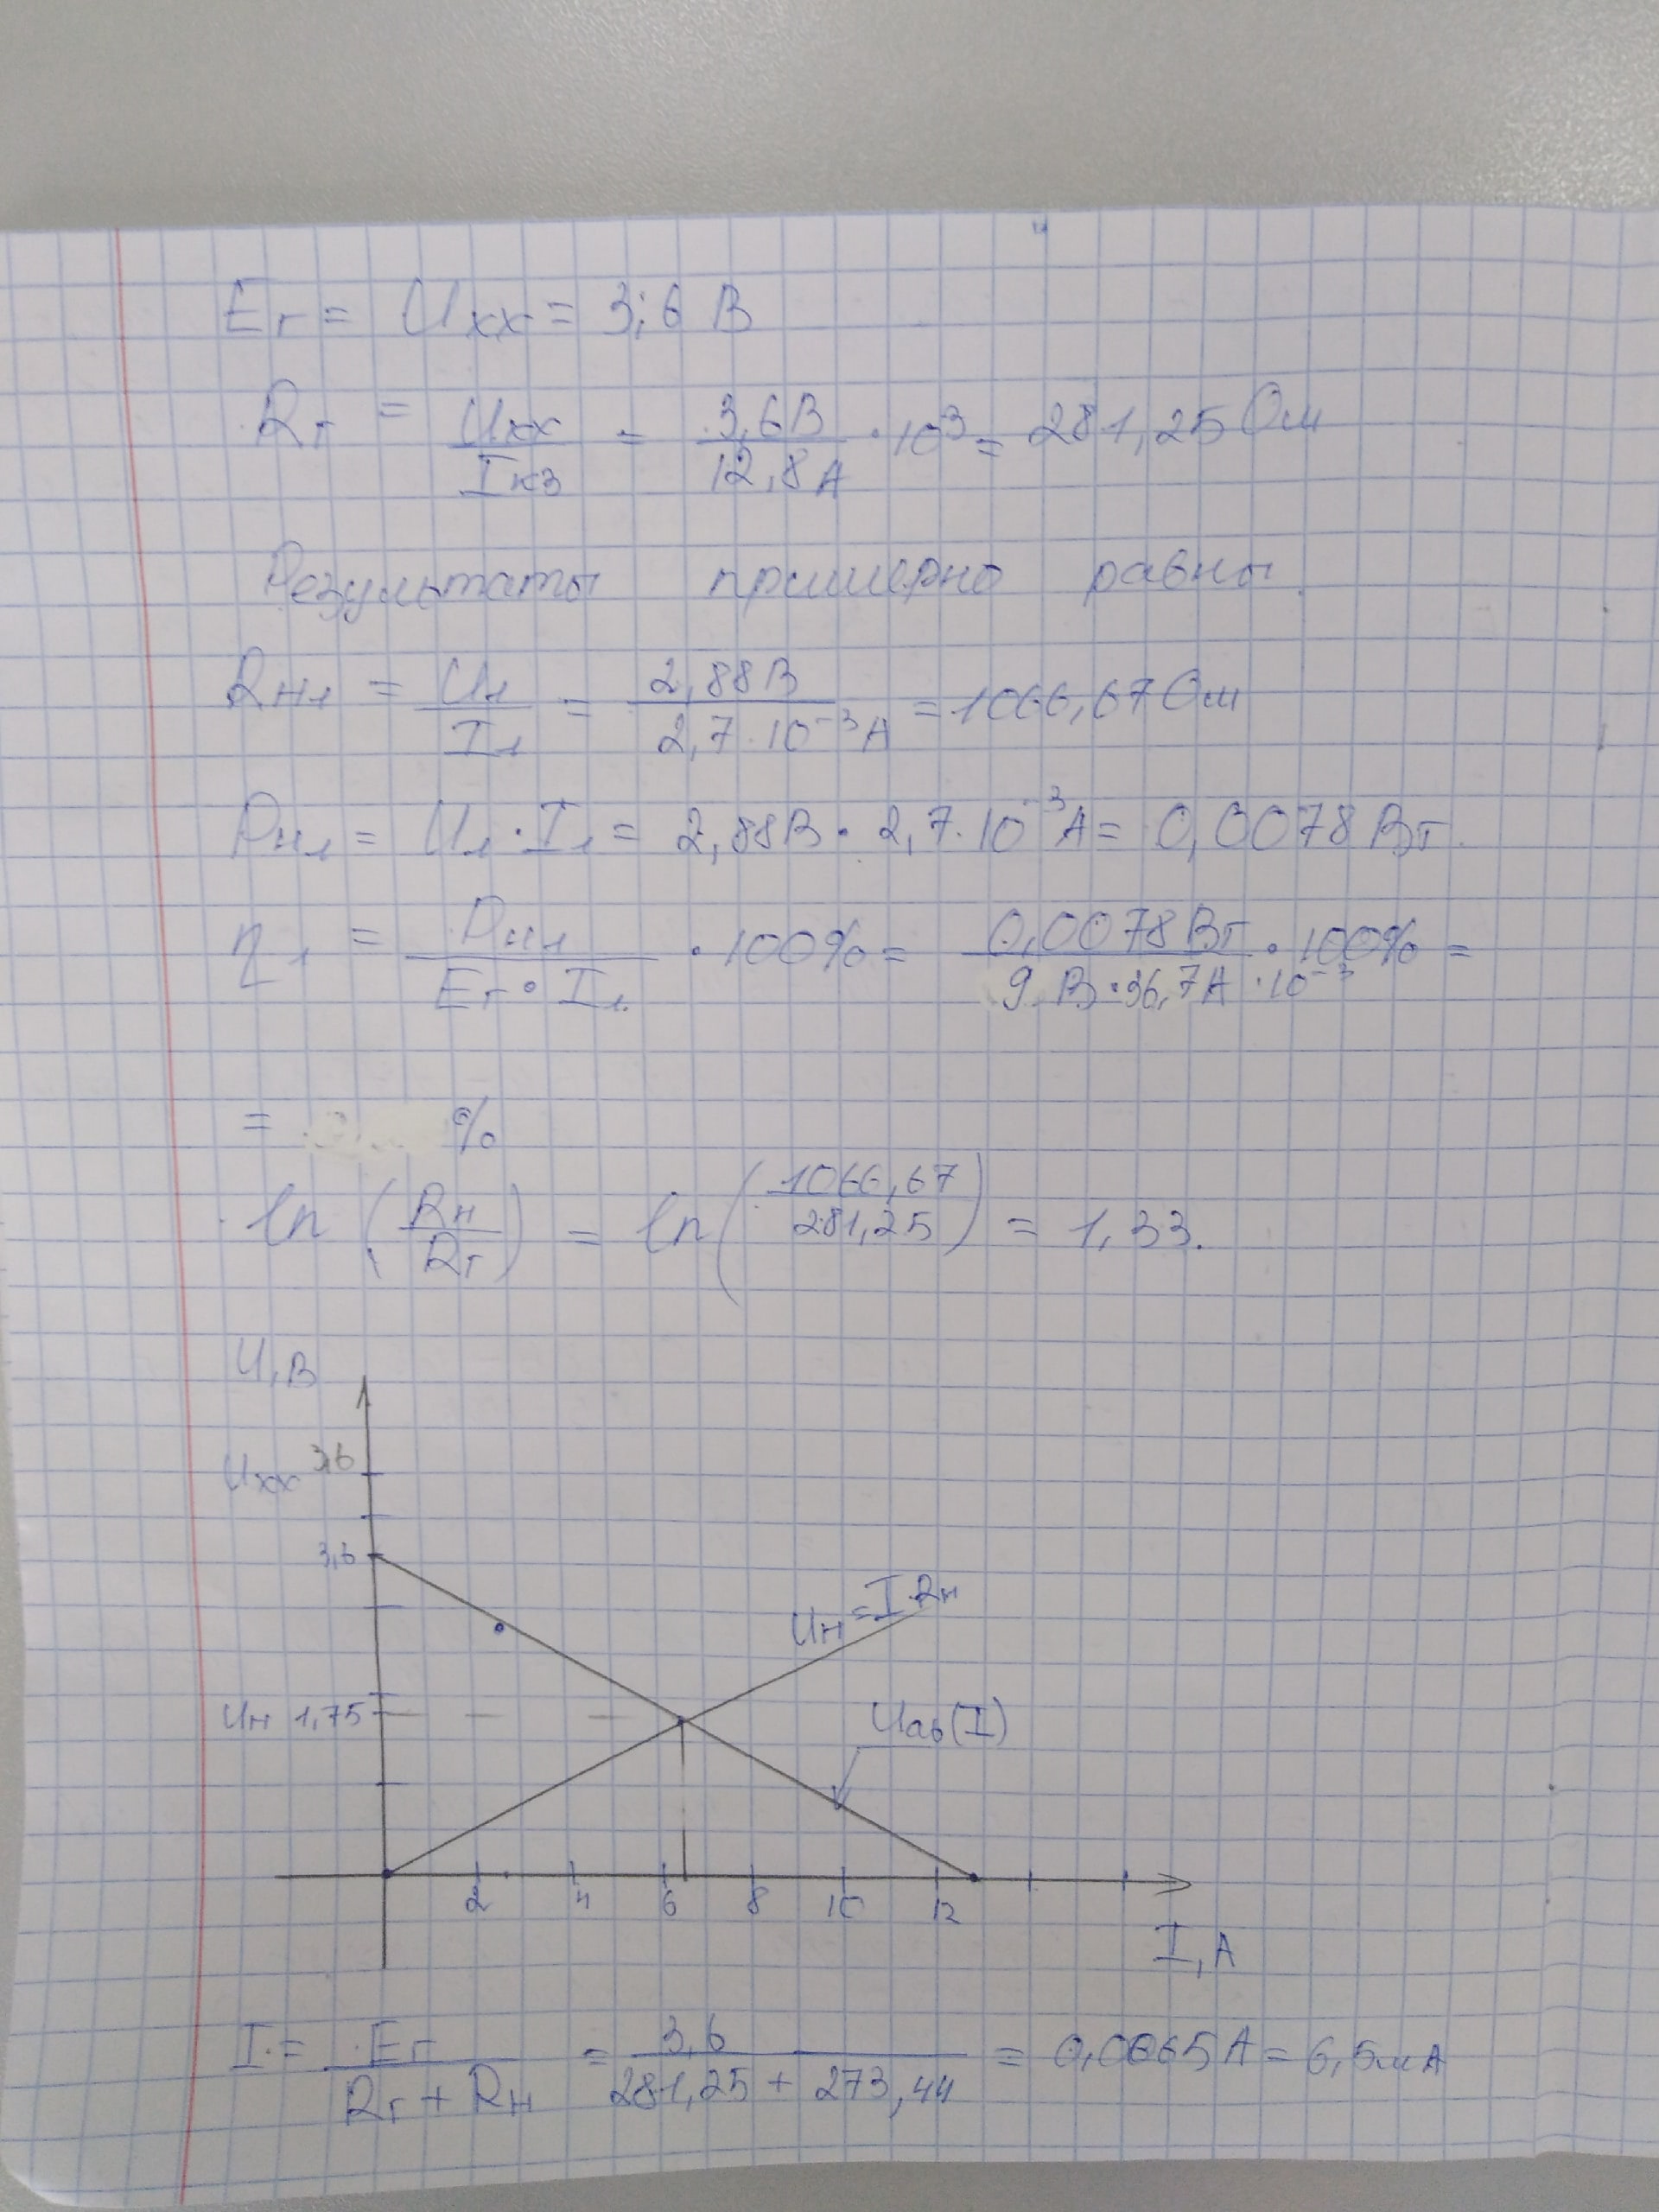 Eг = Uхх = 3,6 В
Rг = Uхх / Iкз = 3,6В / 12,8А · 10³ = 281,25 Ом
Результаты примерно равны.
Rн1 = U1 / I1 = 2,88В / 2,7·10⁻³А = 1066,67 Ом
Pн1 = U1·I1 = 2,88В · 2,7·10⁻³А = 0,0078 Вт.
η1 = Pн1 / Eг·I1 · 100% = 0,0078 Вт / 9 В·36,7А·10⁻³ · 100% =
= %
ln (Rн / Rг) = ln (1066,67 / 281,25) = 1,33.
U,В
Uхх 3,6
3,6
Uн = I·Rн
Uн 1,75
Uab(I)
2 4 6 8 10 12
I,А
I = Eг / Rг + Rн = 3,6 / 281,25 + 273,44 = 0,0065А = 6,5мА